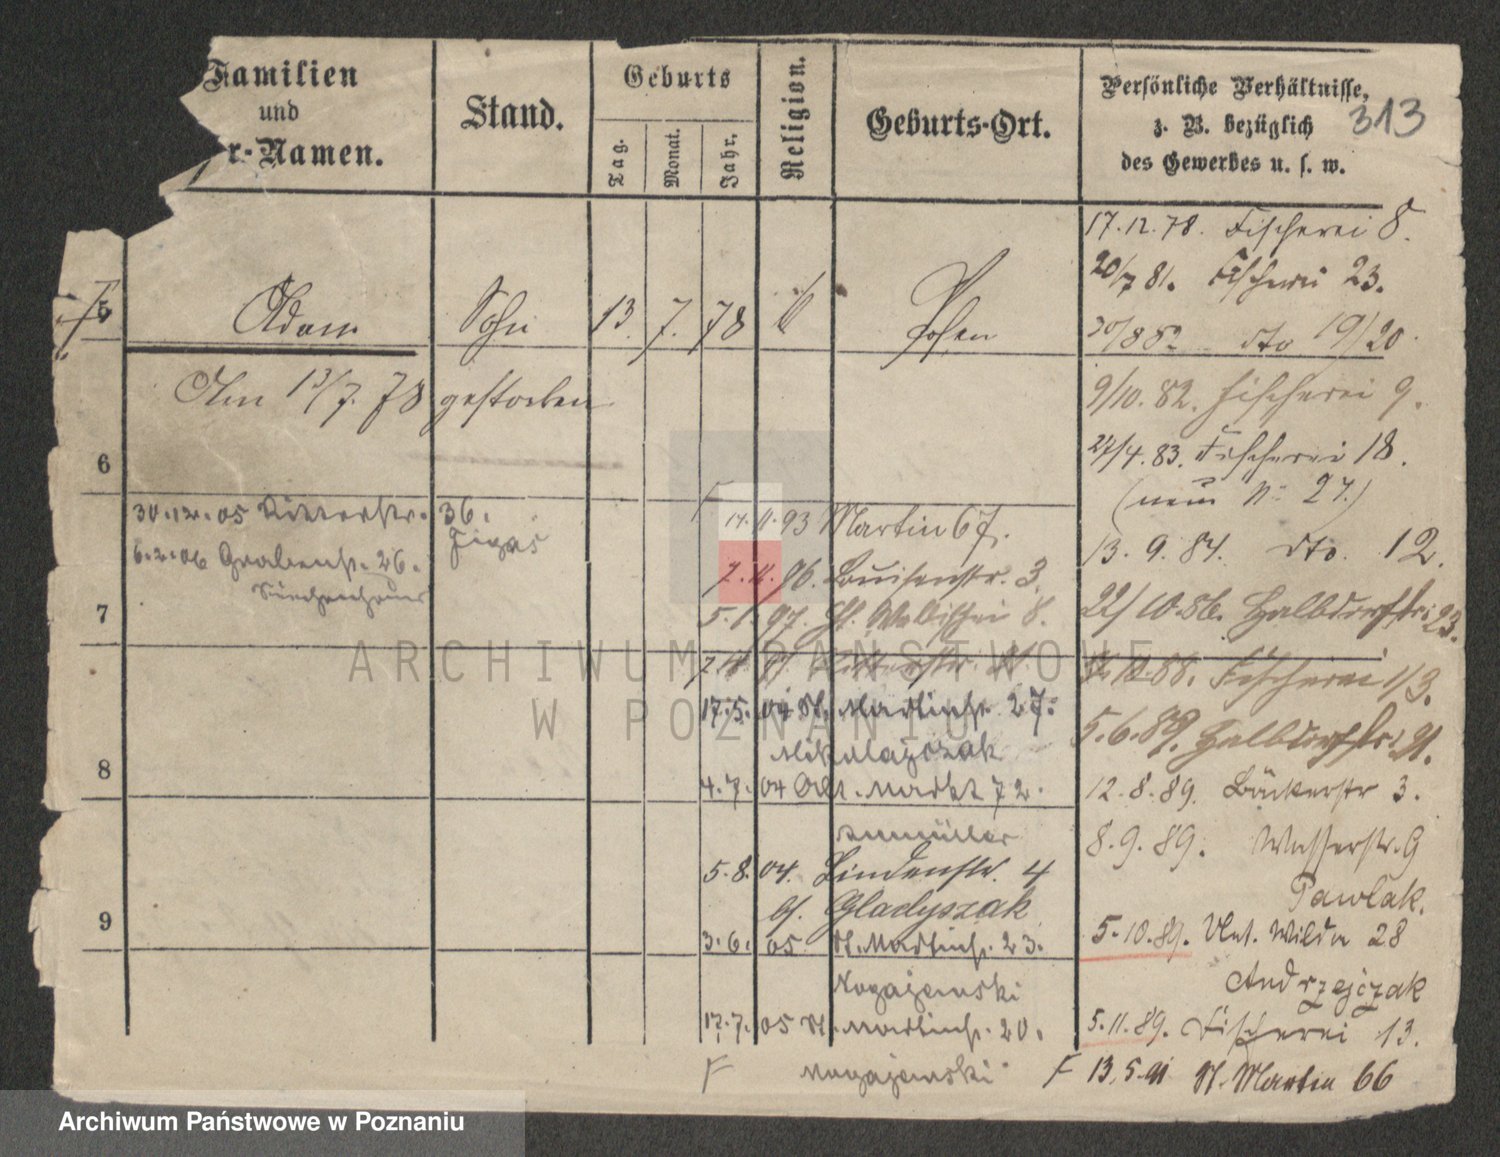 Familien
und
r-Namen.
Stand.
Geburts
Tag.
Monat.
Jahr.
Religion.
Geburts-Ort.
Persönliche Verhältnisse,
z. B. bezüglich
des Gewerbes u. s. w.
313
17.12.78. Fischerei 8.
20/7 81. Fischerei 23.
5 Adam Sohn 13. 7. 78 Posen
dto 19/20
Am 13/7. 78 gestorben
9/10. 82. Fischerei 9.
6
24/4. 83. Fischerei 18.
(neue N 27.)
30.12.05 Ritterstr. 36.
6.2.06 Grabenstr. 26.
14.11.93 Martin 67.
13. 9. 84. dto. 12.
7.11.96. Louisenstr. 3.
7
5.1.97. 8.
22/10.86. Halbdorfstr. 23.
88. Fischerei 1/3.
17.5.04 St. Martinstr. 27.
Mikolajczak
5.6.89. Halbdorfstr. 21.
8
4.7.04 Alt. Markt 72.
12.8.89. Bäckerstr 3.
8.9.89. Wasserstr. 9
Pawlak.
5.8.04. Lindenstr. 4
Gladyszak
9
3.6.05 St. Martinstr. 23.
Nogajewski
5.10.89. Unt. Wilda 28
Andrzejczak
17.7.05 St. Martinstr. 20.
Nogajewski
5.11.89. Fischerei 13.
13.5.91 St. Martin 66
ARCHIWUM PAŃSTWOWE
W POZNANIU
Archiwum Państwowe w Poznaniu